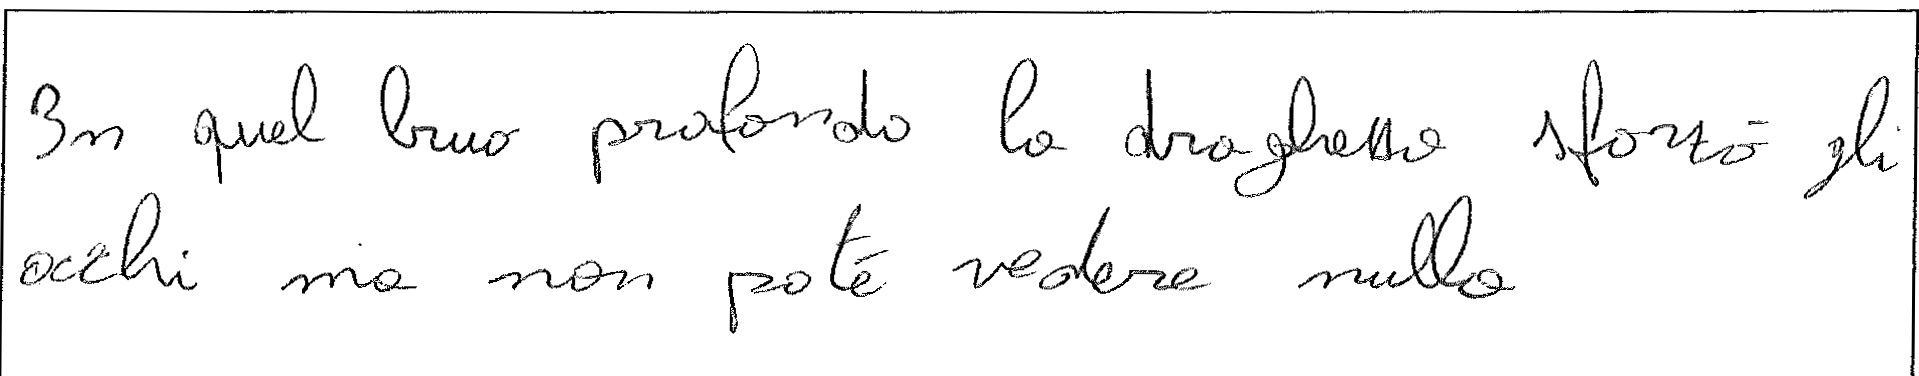 In quel bruo profondo la draghessa sforzò gli
occhi ma non poté vedere nulla